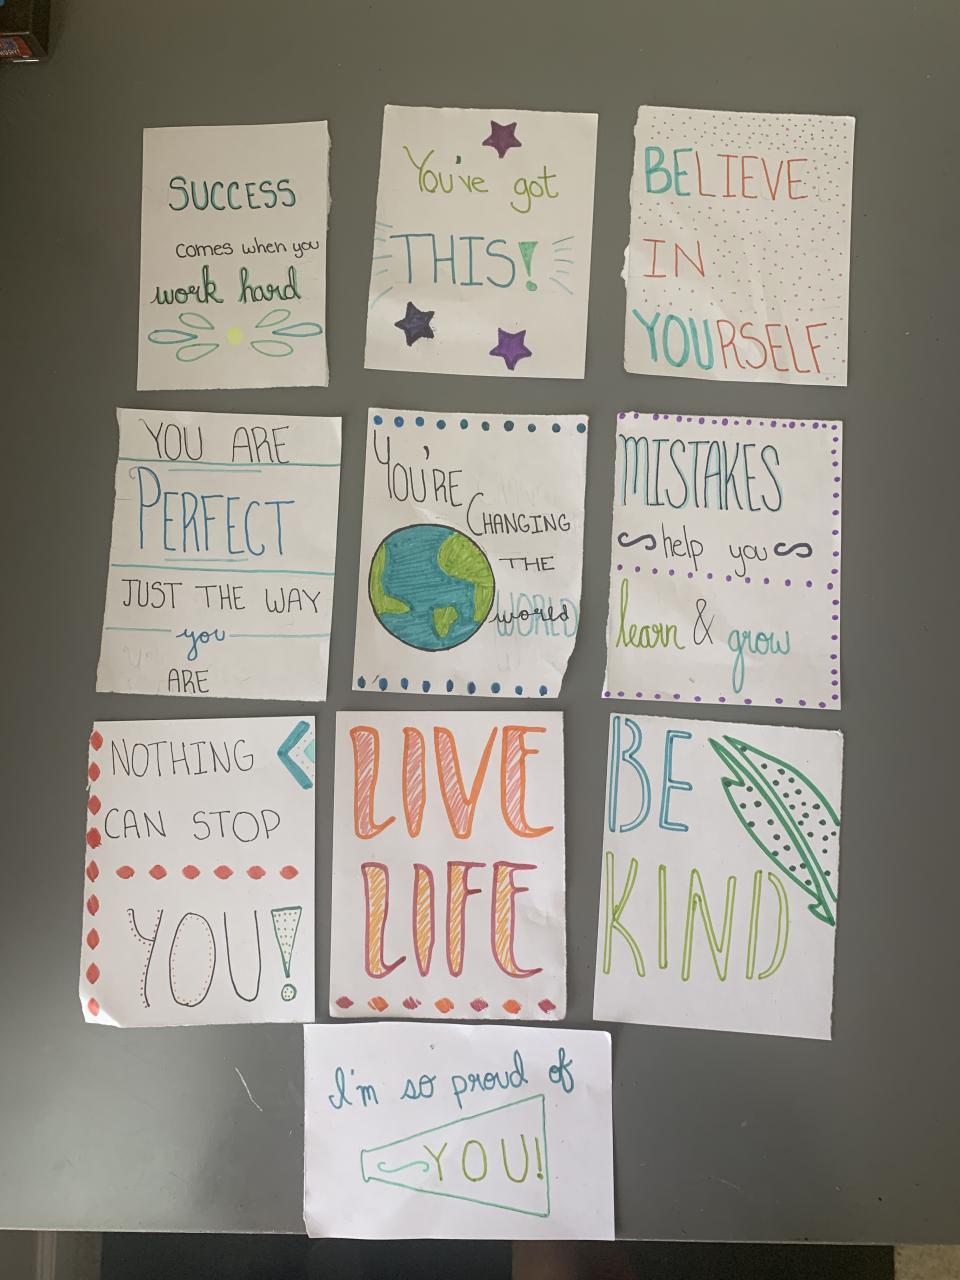 SUCCESS
comes when you
work hard
You've got
THIS!
BELIEVE
IN
YOURSELF
YOU ARE
PERFECT
JUST THE WAY
you
ARE
YOU'RE
CHANGING
THE
world
MISTAKES
help you
learn & grow
NOTHING
CAN STOP
YOU!
LIVE
LIFE
BE
KIND
I'm so proud of
YOU!